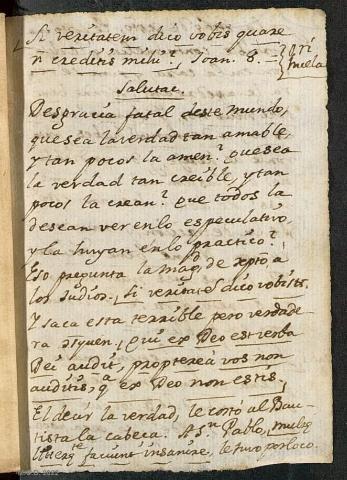 Si veritatem dico vobis quare
n creditis mihi?, Joan. 8.
Salutac.
Desgracia fatal deste mundo,
que sea la verdad tan amable,
y tan pocos la amen? que sea
la verdad tan creible, y tan
pocos la crean? que todos la
desean ver en lo especulativo
y la huyan en lo practico?
Eso pregunta la mag.d de xpto a
los Judios, Si veritatẽ dico vobis etc.
Y saca esta terrible pero verdade
ra illacion, qui ex Deo est verba
Dei audit, propterea vos non
auditis, q.a ex Deo non estis,
El decir la verdad, le cortó al Bau-
tista la cabeca. A S.n Pablo, multę
litterę te faciunt insanire, le tuvo por loco.